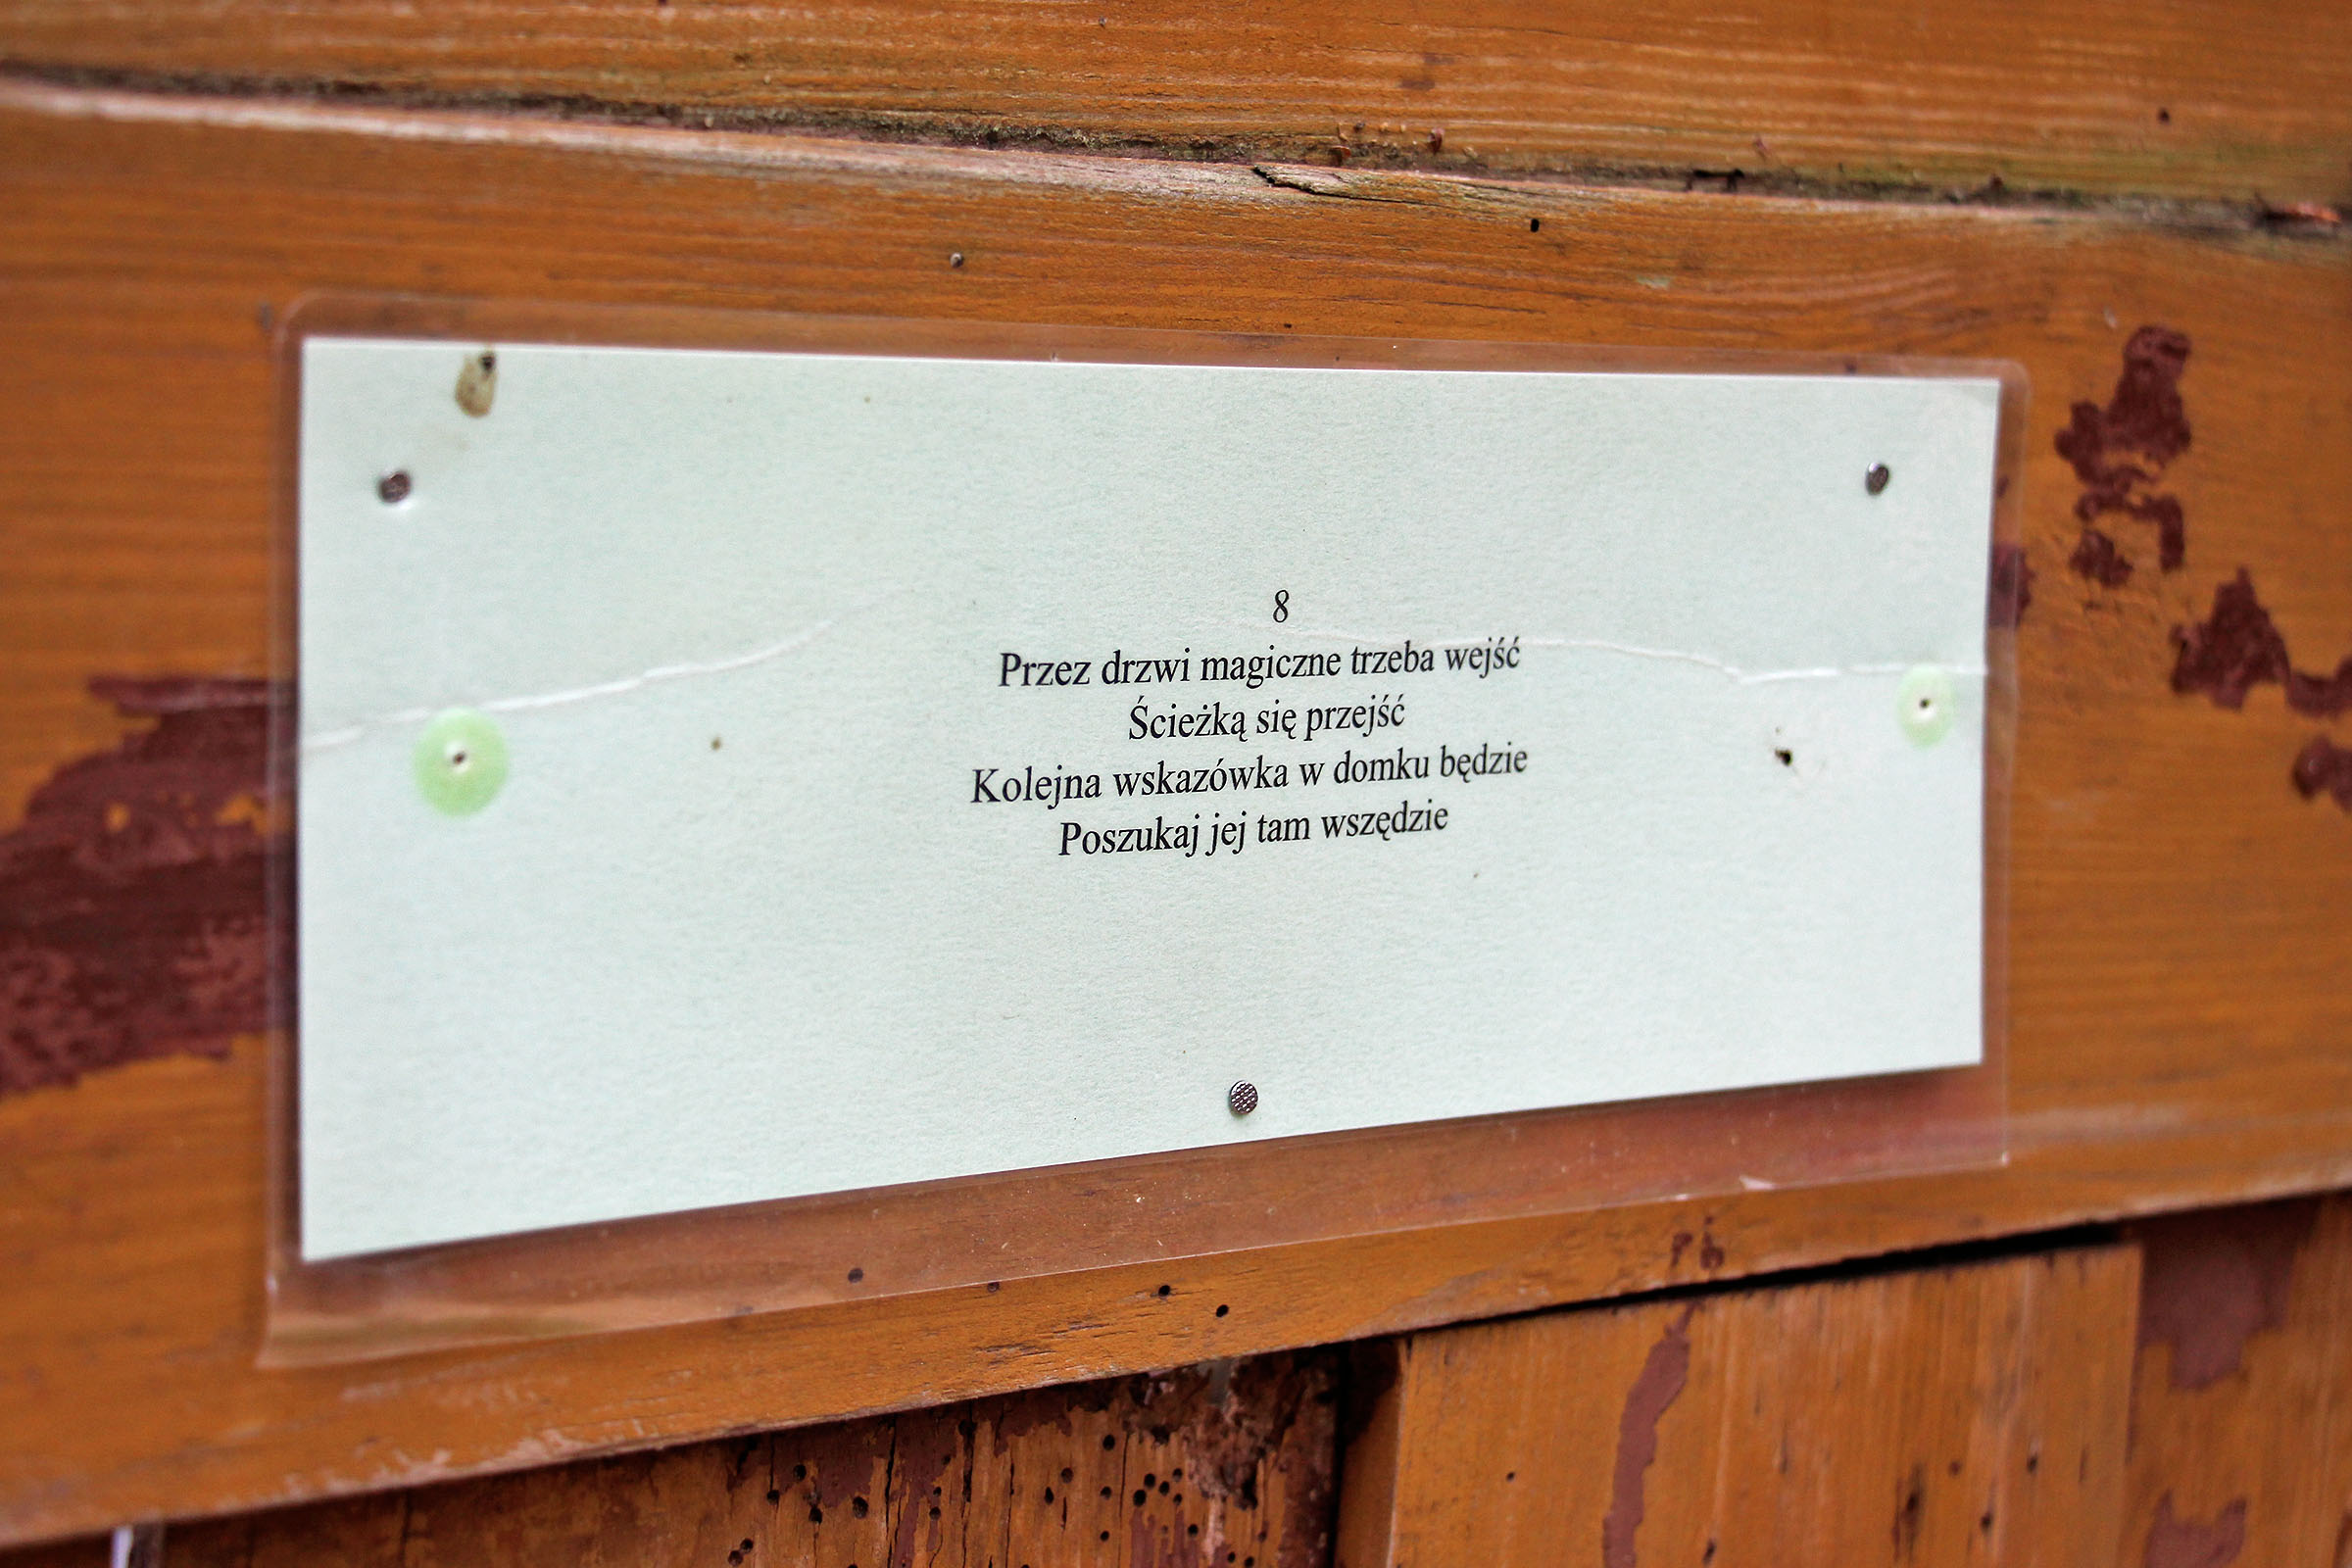 8
Przez drzwi magiczne trzeba wejść
Ścieżką się przejść
Kolejna wskazówka w domku będzie
Poszukaj jej tam wszędzie